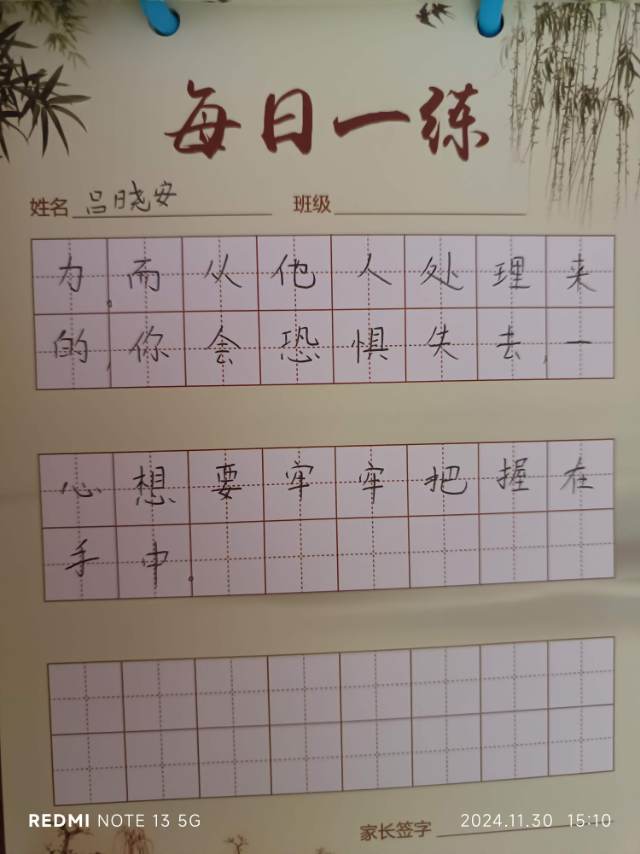 每日一练
姓名 吕晓安 班级
力。而从他人处理来
的,你会恐惧失去,一
心想要牢牢把握在
手中。
家长签字
REDMI NOTE 13 5G 2024.11.30 15:10